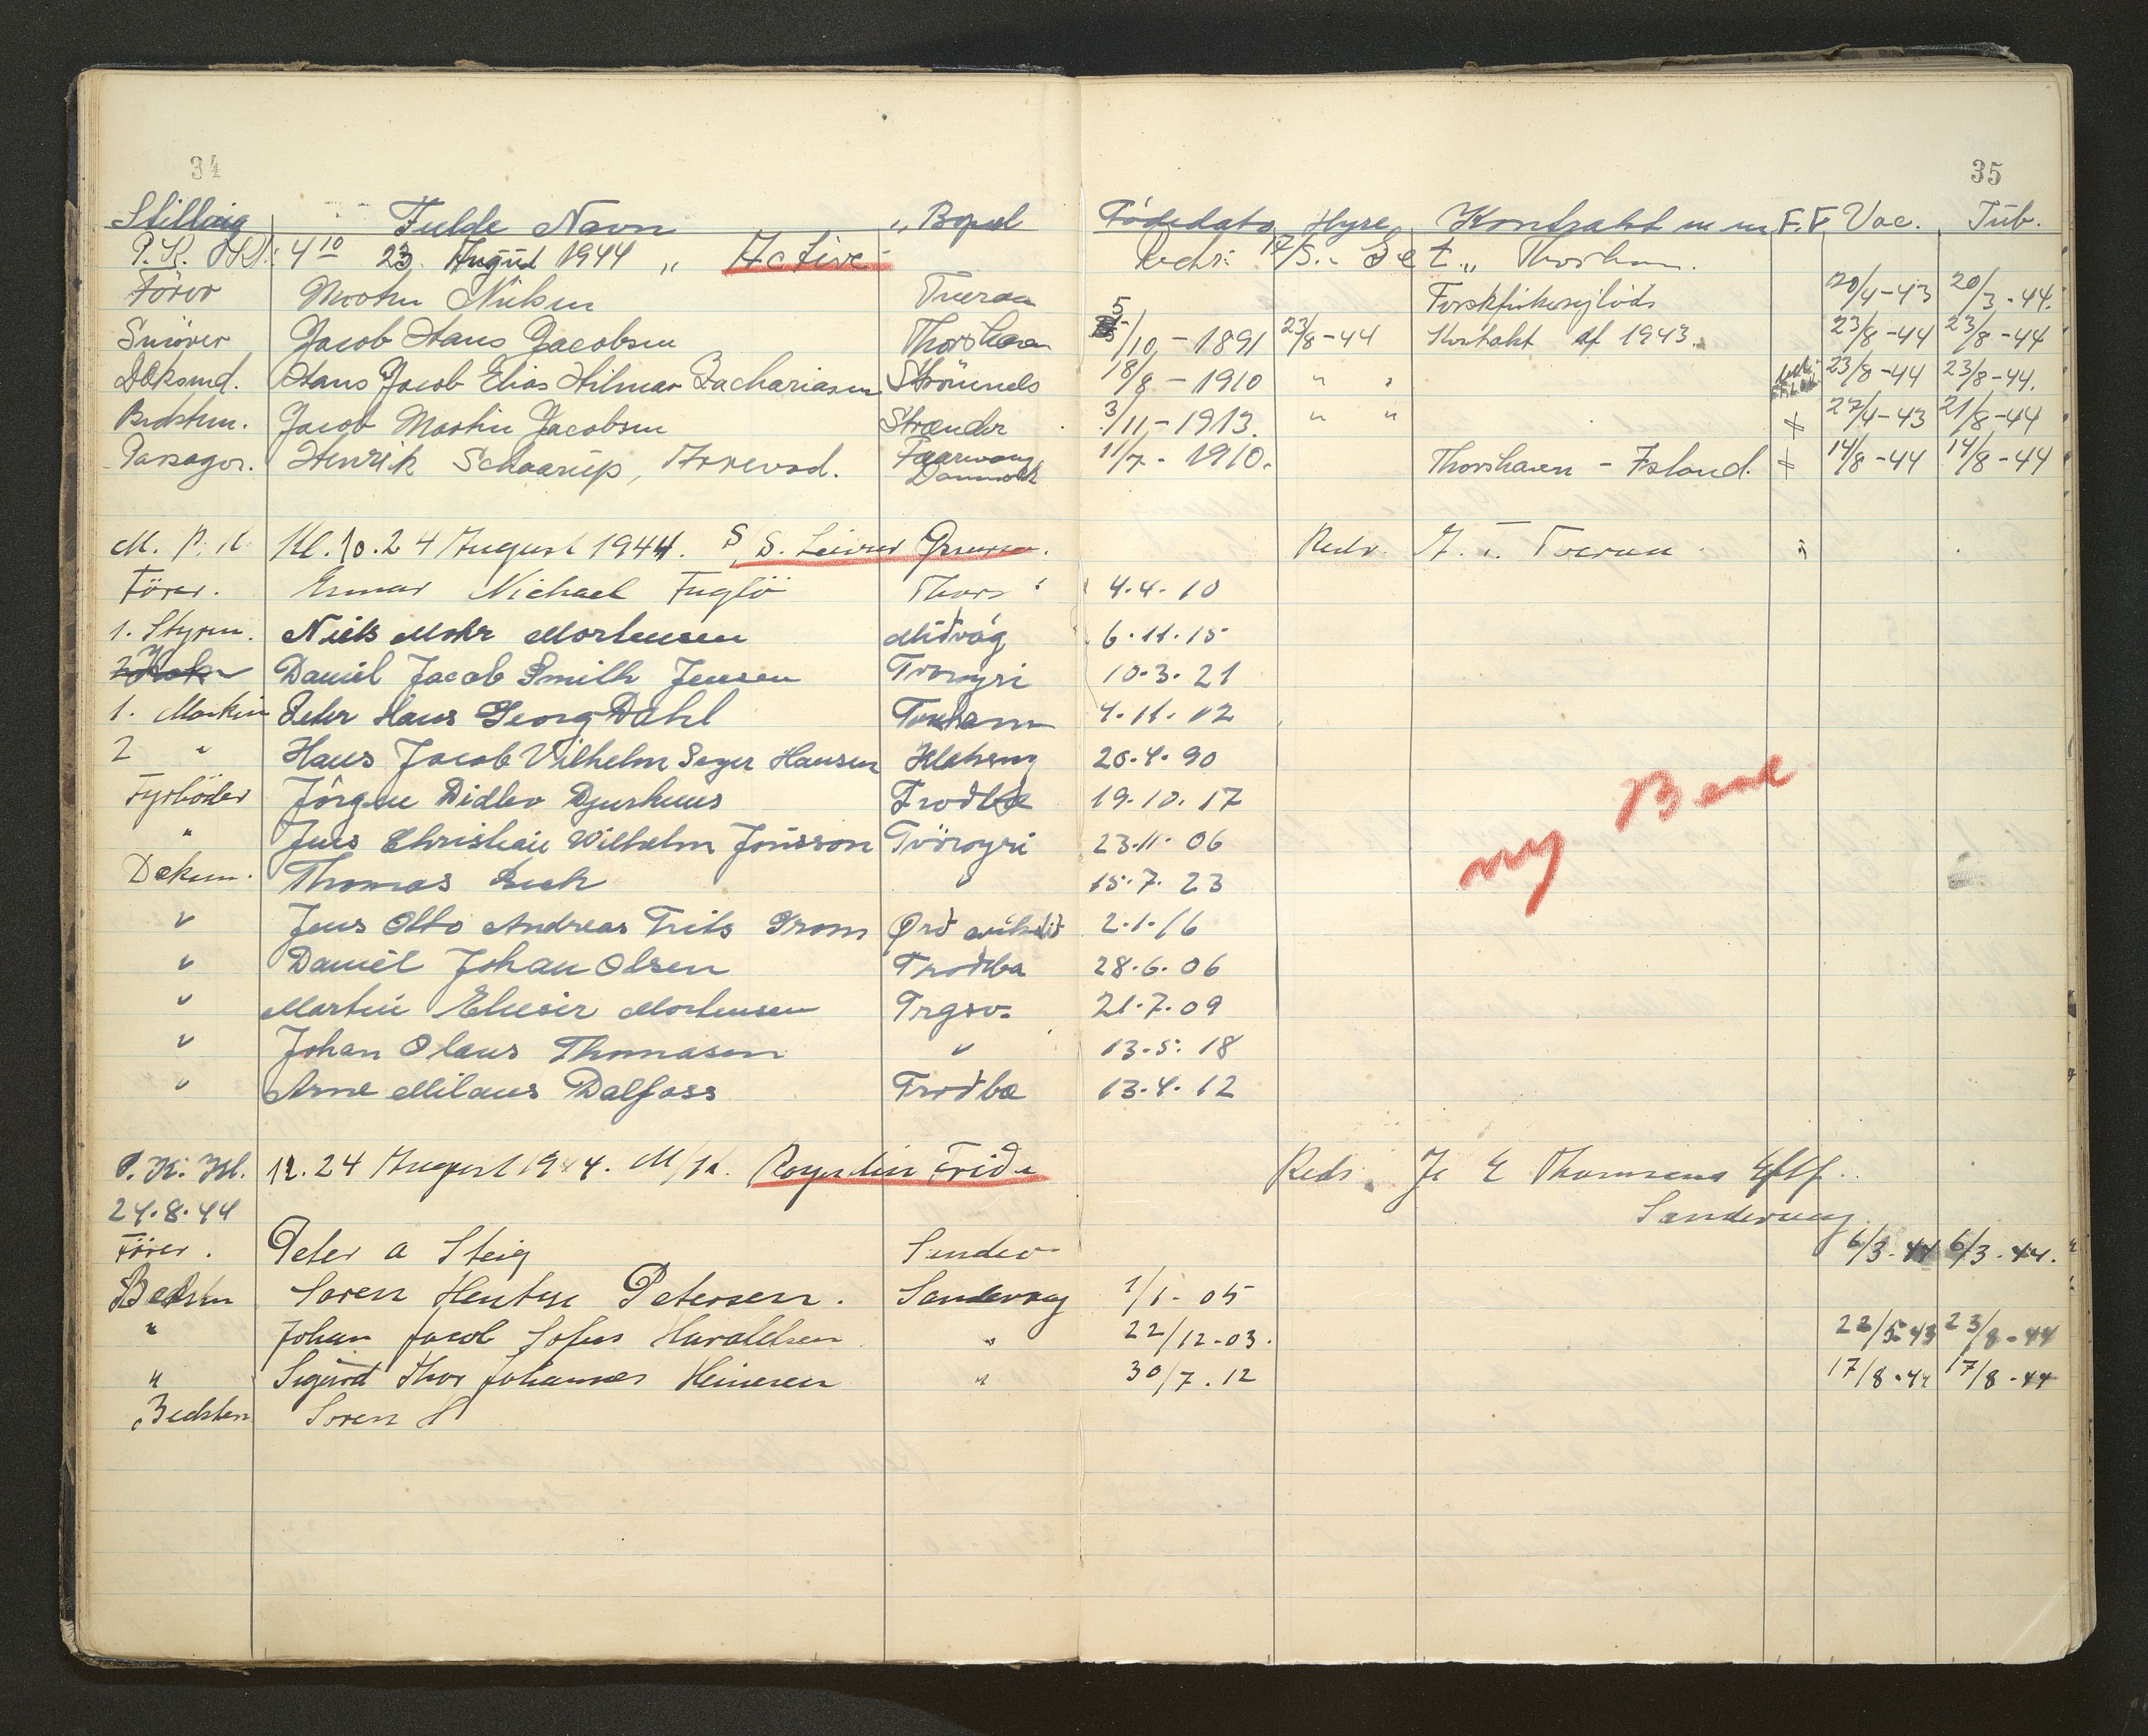 34
35
Stilling Fulde Navn " Bopæl Fødedato Hyre Kontrakt m m F.F Vac. Tub.
P.K. Kl. 4 10 23 August 1944 " Active Thorshavn
Förer Martin Niclsen Tveraa 20/4-43 20/3-44.
Jacob Hans Jacobsen Thorshavn 5/10-1891 23/8-44 Kontrakt af 1943. 23/8-44 23/8-44
Dæksmd. Hans Jacob Elias Hilmar Zachariasen Strömnæs 18/8-1910 " " 23/8-44 23/8-44.
Bedstem. Jacob Martin Jacobsen Strænder 3/11-1913. " " + 27/4-43 21/8-44
Passager. Henrik Schaarup, Faarvang Danmark 11/7-1910. Thorshavn - Island. + 14/8-44 14/8-44
M. P. K. Kl. 10. 24 August 1944. S S. Leivur Redr.
Förer. Michael Fuglö Thors 4.4.10
1. Styrm. Niels Mohr Mortensen Miðvág 6.11.15
2 Daniel Jacob Smith Jensen Tvöroyri 10.3.21
1. Maskin Peter Hans Georg Dahl 4.11.02
2 " Hans Jacob Vilhelm Hansen Klaksvig 20.4.90
Fyrböder Jörgen Didlev Djurhuus Froðba 19.10.17
" Jens Christian Wilhelm Jönsson Tvöroyri 23.11.06
Deksm. Thomas Bech " 15.7.23
" Jens Otto Andreas Frits Krom 2.1.16
" Daniel Johan Olsen Froðba 28.6.06
" Martin Elieser Mortensen Trgsv. 21.7.09
" Johan Olaus Thomasen " 13.5.18
" Arne Milaus Dalfoss Froðba 13.4.12
ny
P. K. Kl. 12. 24 August 1944. M/K. Frida Redr. J. E Thomsens Eftf.
24.8.44 Sandevaag
Förer. Peter a Steig Sandev 6/3-44 6/3-44.
Bedstm Soren Petersen. Sandevag 1/1-05
" Johan Jacob Sofus Haraldsen " 22/12-03. 22/5-43 23/8-44
" Sigurd Thor Johannes Heinesen " 30/7.12 17/8-44 17/8-44
Bedstem Soren H